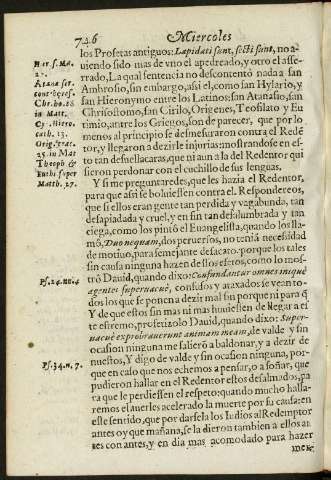 746 Miercoles
los Profetas antiguos: Lapidati sunt, secti sunt, no a-
uiendo sido mas de vno el apedreado, y otro el asse-
rrado, La qual sentencia no descontentó nada a san
Ambrosio, sin embargo, assi el, como san Hylario, y
san Hieronymo entre los Latinos: san Atanasio, san
Chrisostomo, san Cirilo, Origenes, Teofilato y Eu
timio, antre los Griegos, son de parecer, que por lo
menos al principio se desmesuraron contra el Redẽ
tor, y llegaron a dezirle injurias: mostrandose en es-
to tan desuellacaras, que ni aun a la del Redentor qui
sieron perdonar con el cuchillo de sus lenguas.
Y si me preguntaredes, que les hazia el Redentor,
para que assi se boluiessen contra el. Respondereos,
que si ellos eran gente tan perdida y vagabunda, tan
desapiadada y cruel, y en fin tan desalumbrada y tan
ciega, como los pintó el Euangelista, quando los lla-
mó, Duo nequam, dos peruersos, no tenia necessidad
de motiuo, para semejante desacato: porque los tales
sin causa ninguna hazen dessos efetos, como lo mos-
tró Dauid, quando dixo: Confundantur omnes iniquè
agentes superuacuè, confusos y ataxados se vean to-
dos los que se ponen a dezir mal sin porque ni para q̃
Y de que estos sin mas ni mas huuiessen de llegar a es
te estremo, profetizolo Dauid, quando dixo: Super-
uacuè exprobrauerunt animam meam, de valde y sin
ocasion ninguna me salierõ a baldonar, y a dezir de
nuestos, Y digo de valde y sin ocasion ninguna, por-
que en caso que nos echemos a pensar, o a soñar, que
pudieron hallar en el Redentor estos desalmados, pa
ra que le perdiessen el respeto: quando mucho halla-
remos el auerles acelerado la muerte por su causa: en
este sentido, que por darsela los Iudios al Redemptor
antes oy que mañana, se la dieron tambien a ellos an
tes con antes, y en dia mas acomodado para hazer
Her. s. Ma.
27.
Atana ser.
Chr. ho. 88
in Matt.
Cy. Hiero.
cath. 13.
Orig. trac.
35. in Mat
Theoph &
Euthi super
Matth. 27.
Ps. 24. nu. 4
Ps. 34. n. 7.